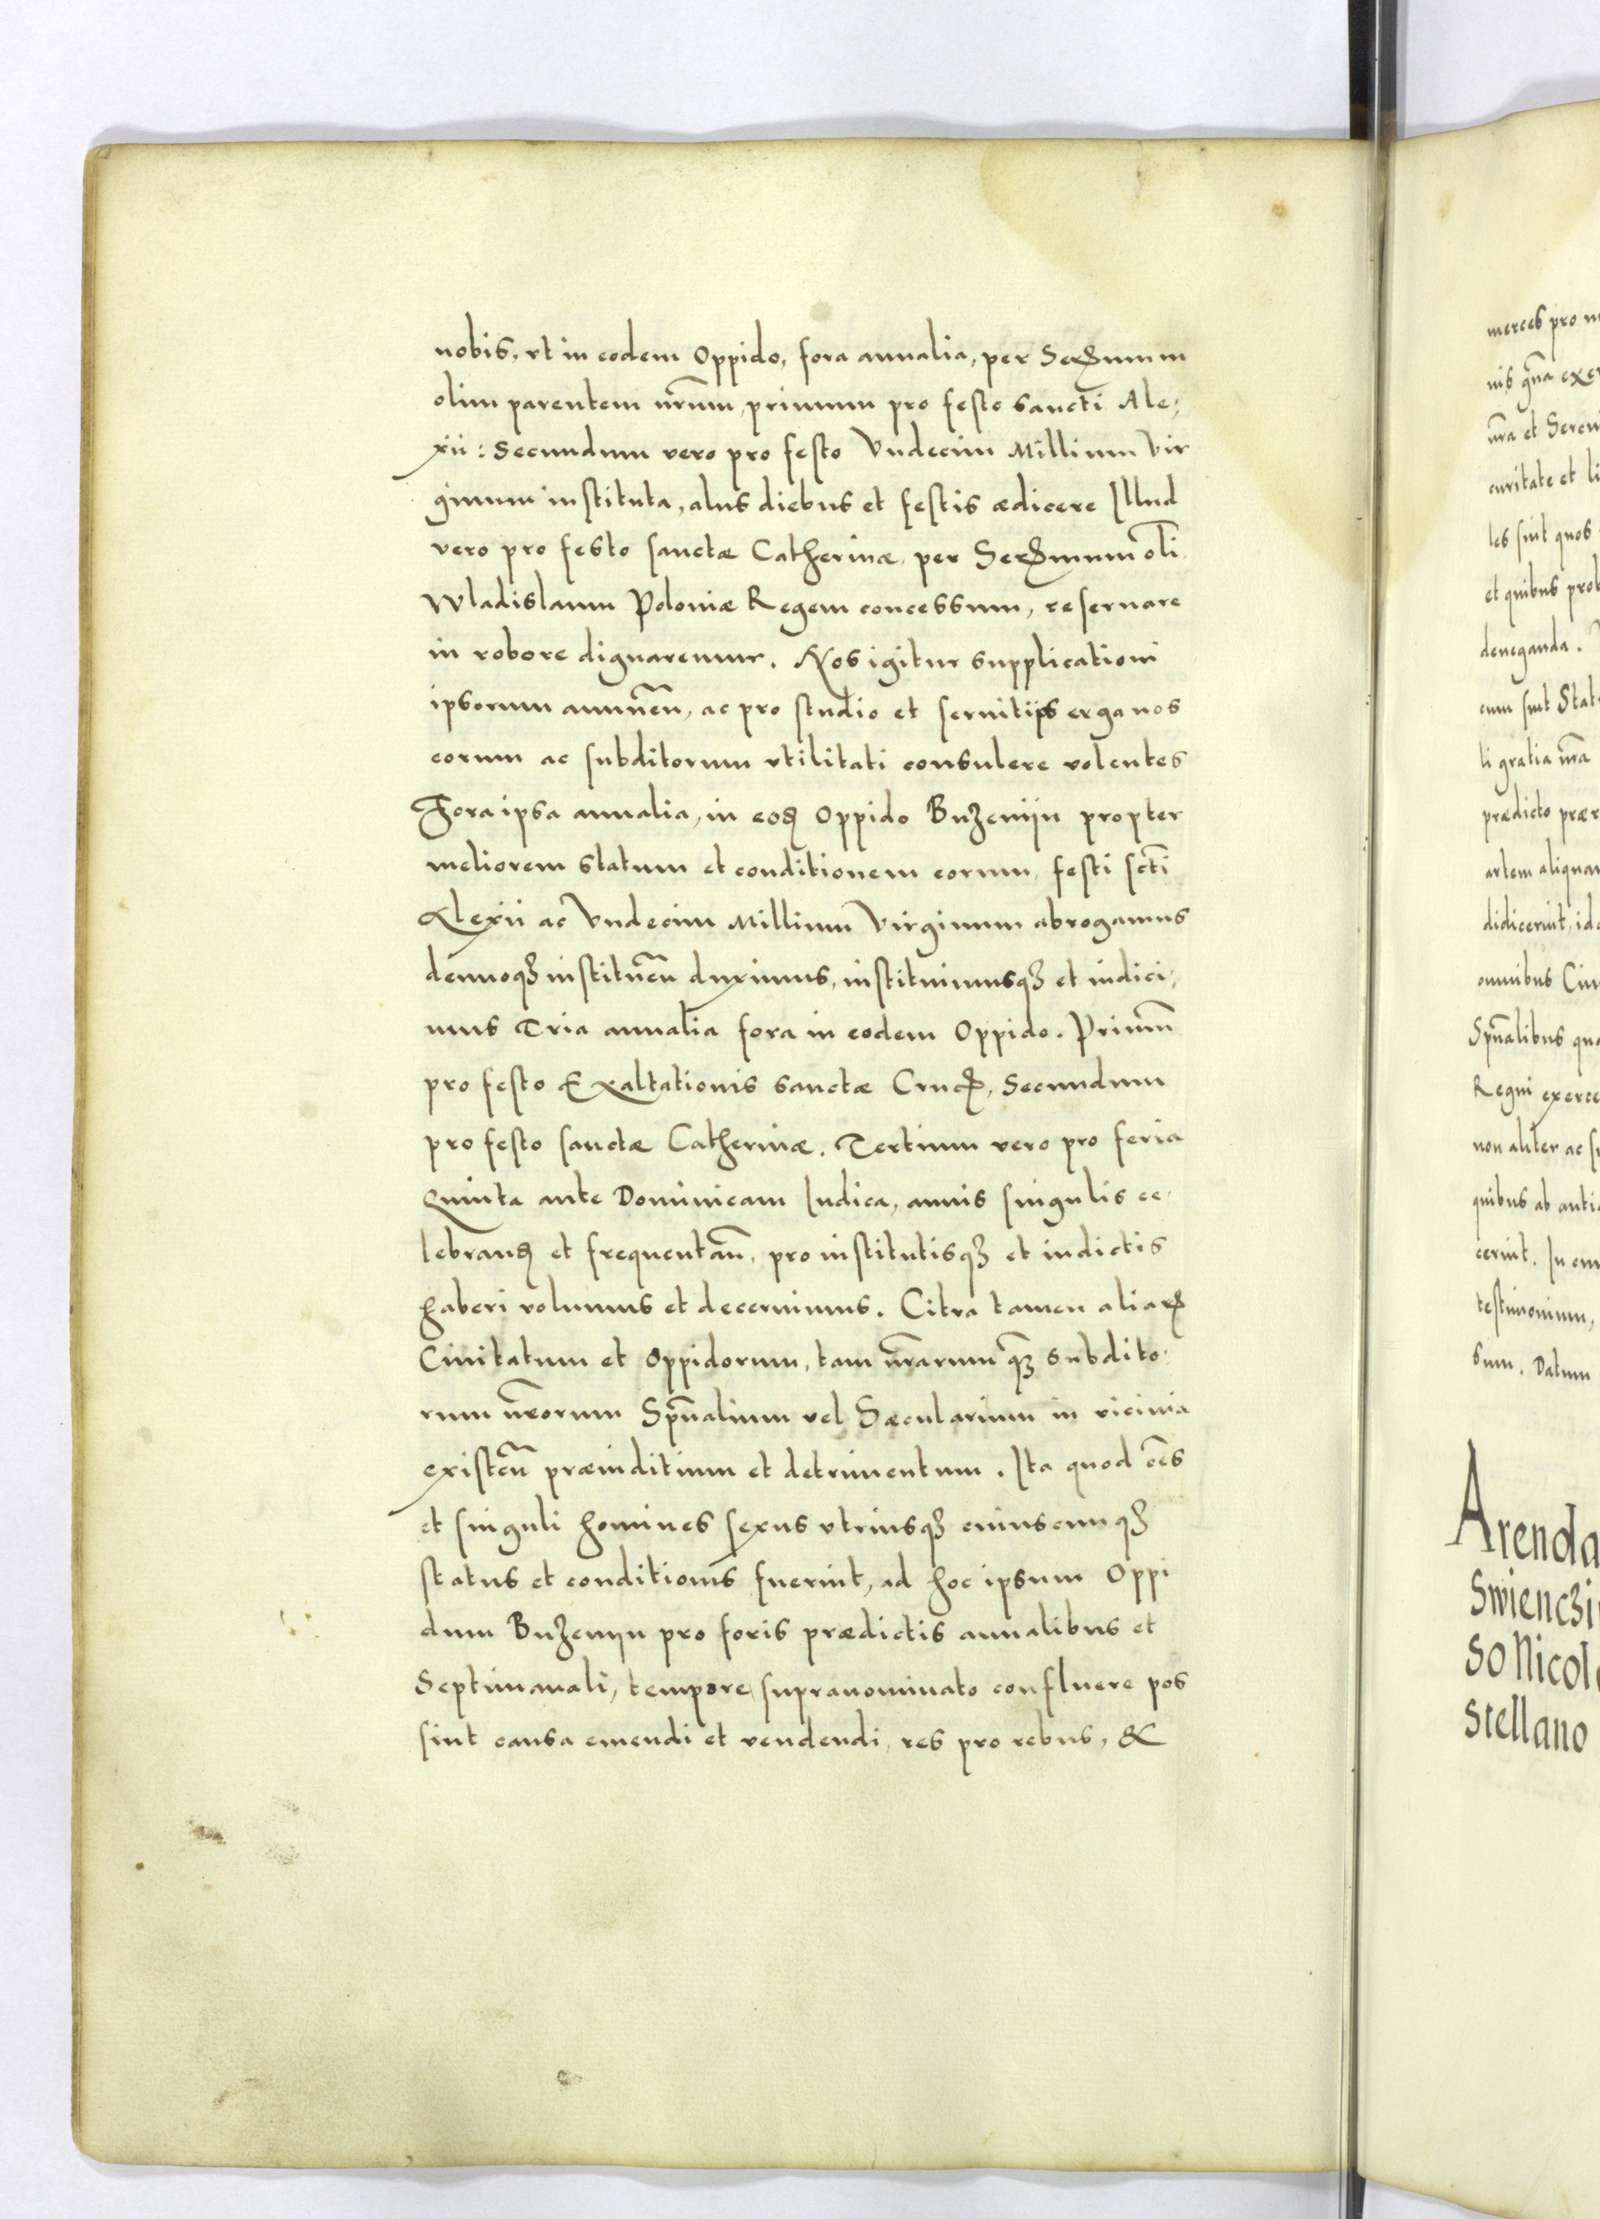 nobis, vt in eodem Oppido, fora annalia, per Serꝫnum m
olim parentem nr̃um, primum pro festo sancti Ale,
xii: Secundum vero pro festo Vndecim Millium Vir
ginum instituta, alijs diebus et festis ædicere Illud
vero pro festo sanctæ Catherinæ per Serꝫnum oli
Wladislaum Poloniæ Regem concessum, reseruare
in robore dignaremur. Nos igitur supplicationi
ipsorum annuen̄, ac pro studio et seruitijs erga nos
eorum ac subditorum vtilitati consulere volentes
Fora ipsa annalia, in eod Oppido Buzenijn propter
meliorem statum et conditionem eorum, festi scti
Alexii ac Vndecim Millium Virginum abrogamus
denuoqꝫ instituen̄ duximus, instituimusqꝫ et indici,
mus Tria annalia fora in eodem Oppido. Primum̄
pro festo Exaltationis sanctæ Crucꝭ, Secundum
pro festo sanctæ Catherinæ. Tertium vero pro feria
quinta ante Dominicam Iudica, annis singulis ce,
lebrand et frequentan̄, pro institutisqꝫ et indictis
haberi volumus et decernimus. Citra tamen aliaꝝ
Ciuitatum et Oppidorum, tam nr̃arum qꝫ subdito,
rum nr̃orum Spūalium vel Sæcularium in vicinia
existen̄ præiuditium et detrimentum. Ita quod oēs
et singuli homines sexus vtriusqꝫ cuiuscunqꝫ
status et conditionis fuerint, ad hoc ipsum Oppi
dum Buzenijn pro foris prædictis annalibus et
Septimanali, tempore supranominato confluere pos
sint causa emendi et vendendi, res pro rebus, &
merces pro
nis
nr̃a et
curitate et
les sint quos
et quibus
deneganda.
cum sint
li gratia nr̃a
prædicto
artem
didicerint,
omnibus
Spūalibus
Regni
non aliter ac
quibus ab
cerint. In
testimonium,
sum. Datum
Arenda
So
stellano